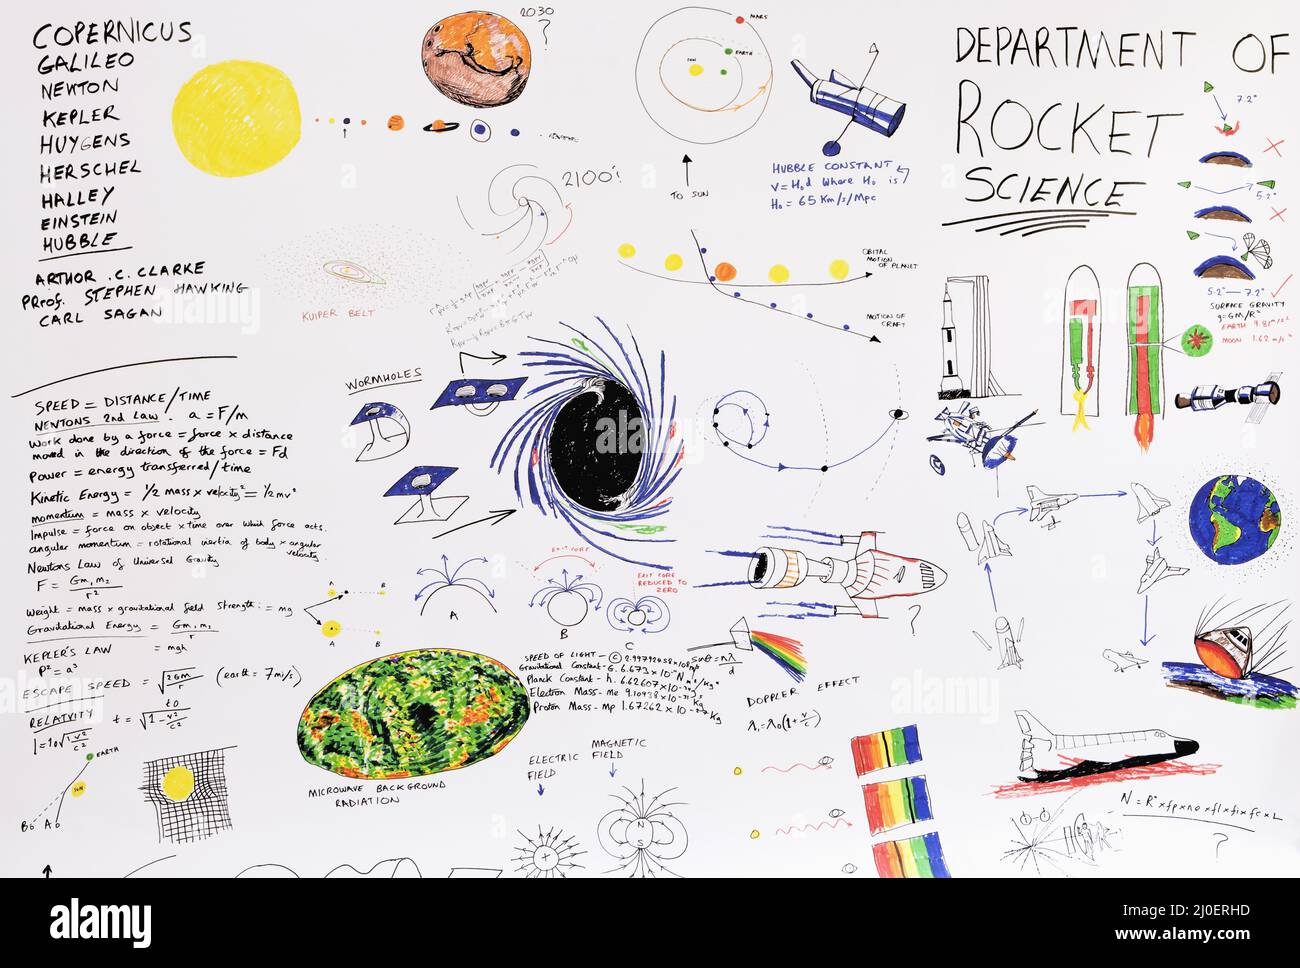 COPERNICUS
GALILEO
NEWTON
KEPLER
HUYGENS
HERSCHEL
HALLEY
EINSTEIN
HUBBLE
ARTHOR .C. CLARKE
PROF. STEPHEN HAWKING
CARL SAGAN
2030
?
MARS
EARTH
SUN
TO SUN
HUBBLE CONSTANT
V = H₀d where H₀ is
H₀ = 65 Km/s/Mpc
DEPARTMENT OF
ROCKET
SCIENCE
7.2°
5.2°
5.2° — 7.2°
SURFACE GRAVITY
g=GM/R²
EARTH 9.81 m/s²
MOON 1.62 m/s²
2100?
KUIPER BELT
ORBITAL
MOTION
OF PLANET
MOTION OF
CRAFT
WORMHOLES
SPEED = DISTANCE/TIME
NEWTONS 2nd LAW . a = F/m
Work done by a force = force x distance
moved in the direction of the force = Fd
Power = energy transferred/time
Kinetic Energy = 1/2 mass x velocity² = 1/2 mv²
momentum = mass x velocity
Impulse = force on object x time over which force acts.
angular momentum = rotational inertia of body x angular
velocity
Newtons Law of Universal Gravity
F = Gm₁m₂
r²
Weight = mass x gravitational field strength: = mg
Gravitational Energy = Gm₁m₂
r
= mgh
KEPLER'S LAW
P² = a³
ESCAPE SPEED = √2GM
r
(earth = 7mi/s)
RELATVITY
t = t0
√1-v²
c²
l = l0√1-v²
c²
EARTH
SUN
B₀ A₀
A B
A B
A
EXIT CORE
B
EXIT CORE
REDUCED TO
ZERO
C
?
SPEED OF LIGHT - (C) 2.99792458 x 10⁸ m/s
Gravitational Constant - G. 6.673 x 10⁻¹¹ N m²/kg²
Planck Constant - h. 6.62607 x 10⁻³⁴ J s
Electron Mass - Me 9.10938 x 10⁻³¹ kg
Proton Mass - Mp 1.67262 x 10⁻²⁷ kg
sinθ = nλ
d
DOPPLER EFFECT
λ₁ = λ₀(1+v/c)
MICROWAVE BACKGROUND
RADIATION
ELECTRIC
FIELD
MAGNETIC
FIELD
+
N
S
N = R* x fp x ne x fl x fi x fc x L
?
alamy
alamy
Image ID: 2J0ERHD
www.alamy.com